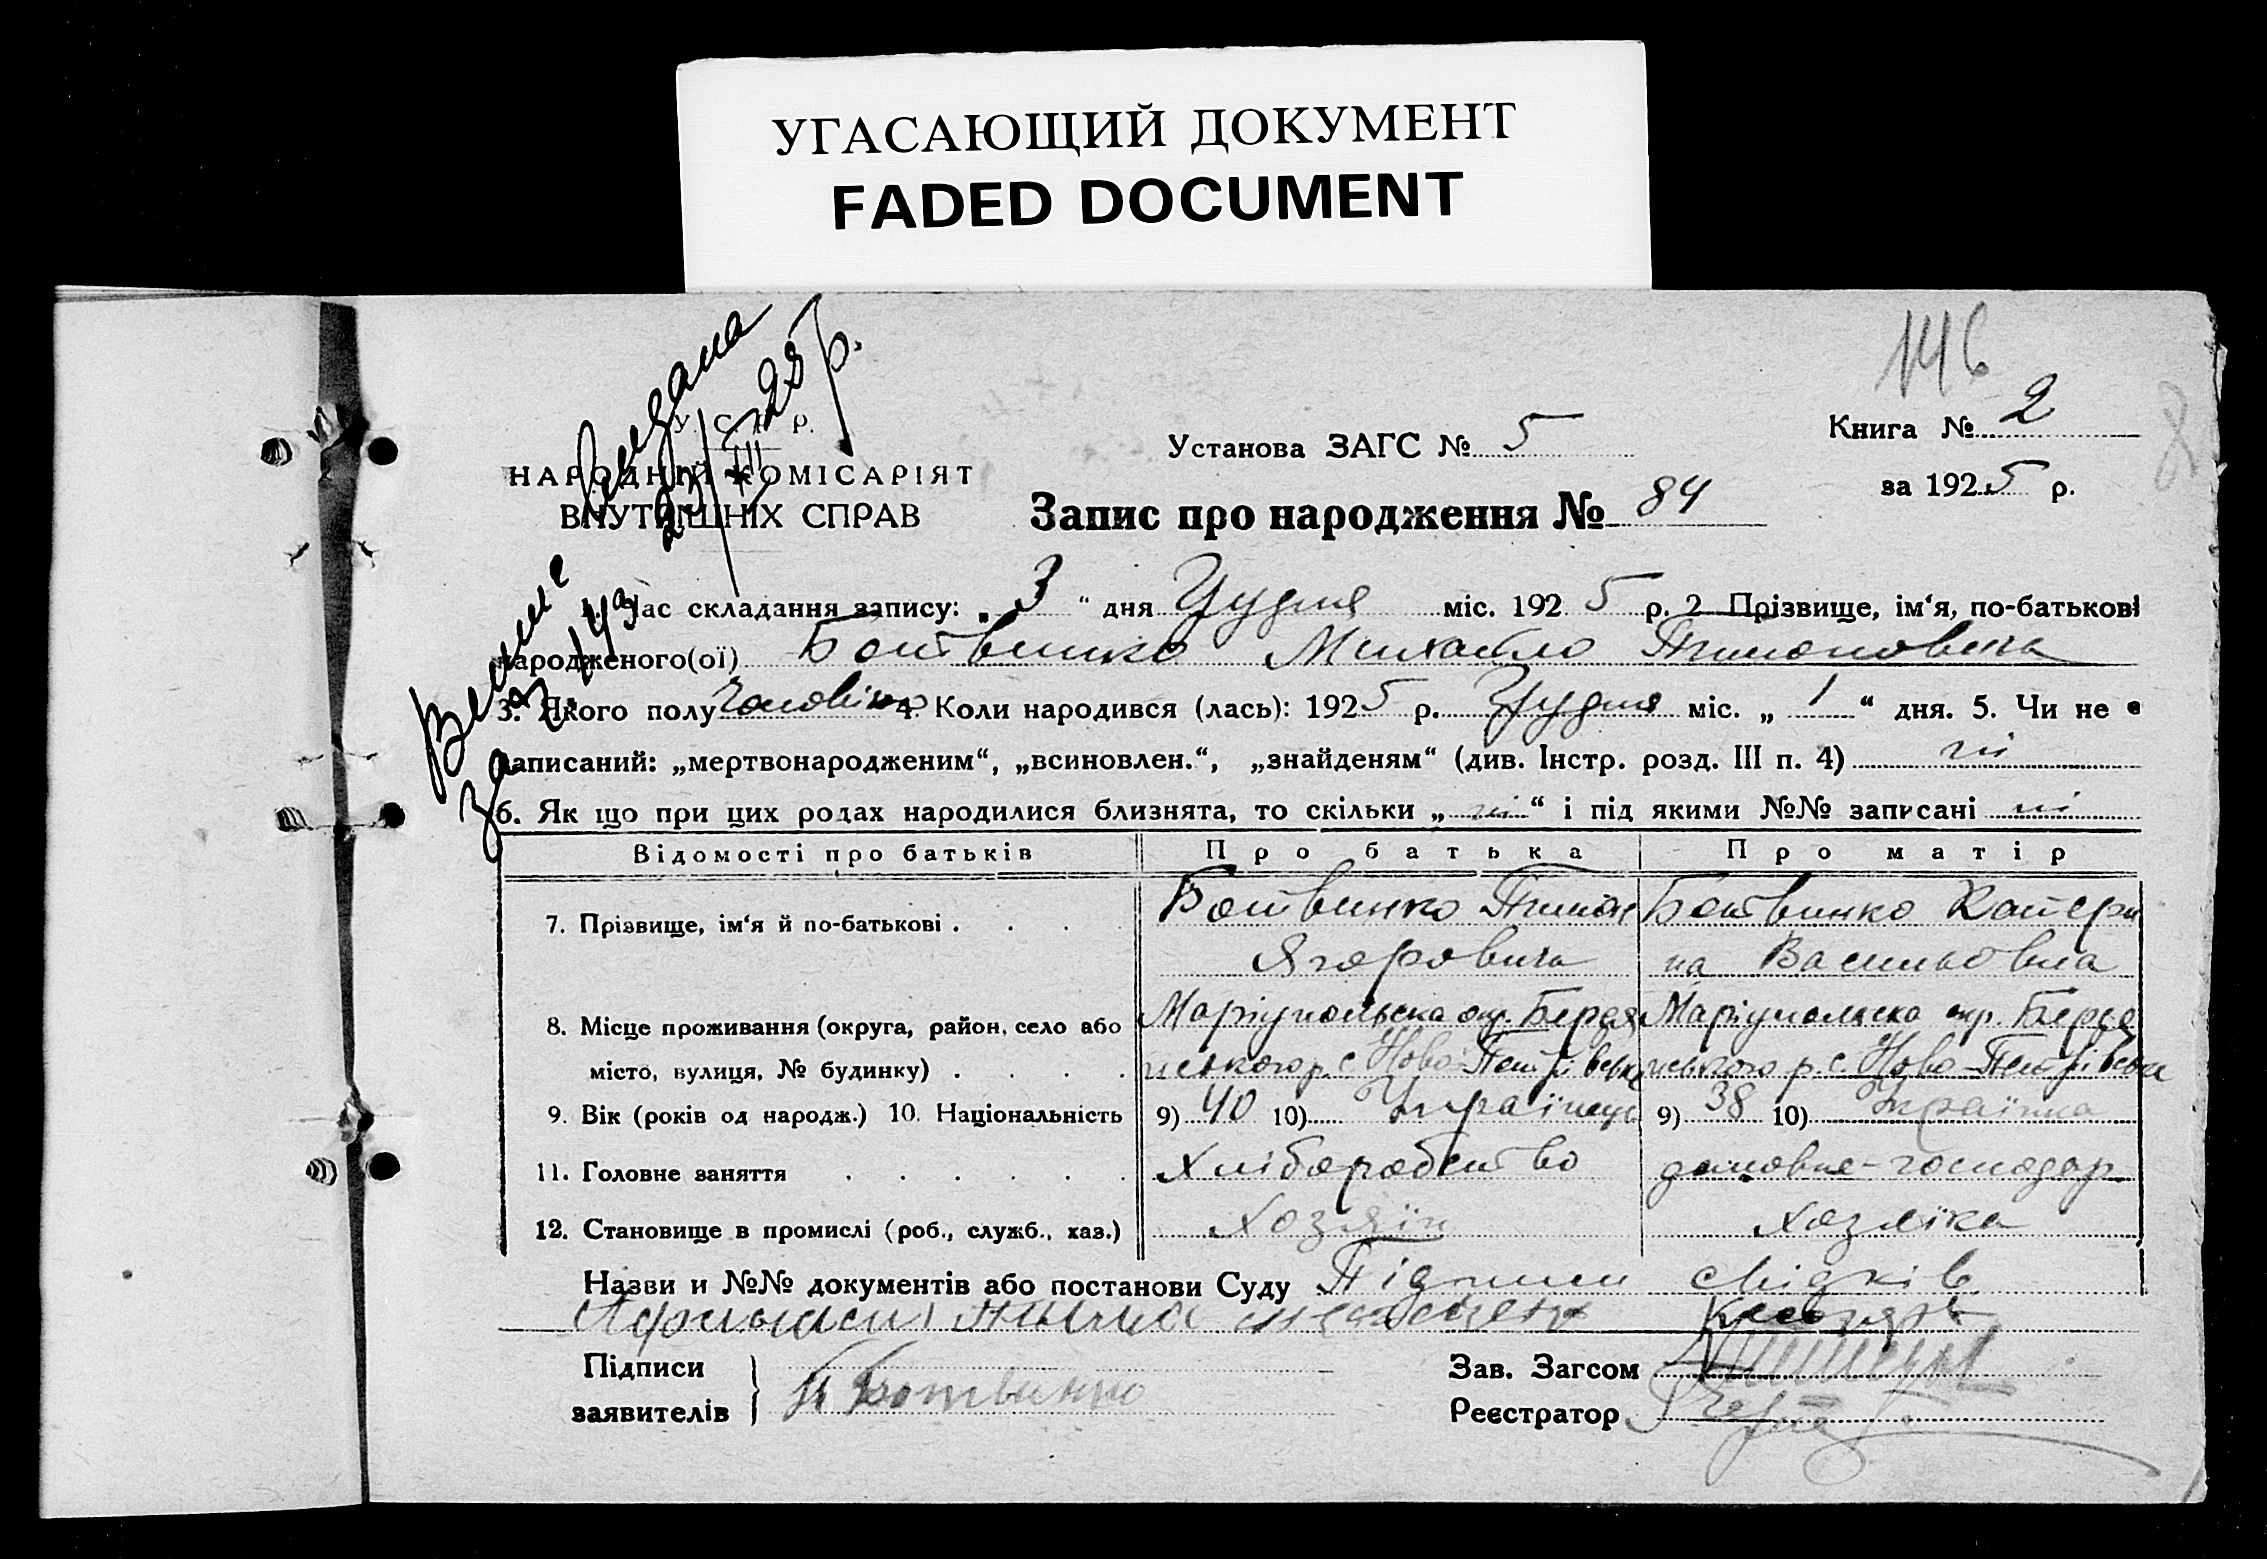 УГАСАЮЩИЙ ДОКУМЕНТ
FADED DOCUMENT
146
У. С. Р. Р.
Установа ЗАГС № 5
Книга № 2
НАРОДНІЙ КОМІСАРІЯТ
за 1925 р.
ВНУТРІШНІХ СПРАВ
Запис про народження № 84
1. Час складання запису: „3“ дня Грудня міс. 1925 р. 2 Прізвище, ім‘я, по-батькові
народженого(ої) Ботвинко Михайло Тимонович
3. Якого полу Чоловіко 4. Коли народився (лась): 1925 р. Грудня міс. „1“ дня. 5. Чи не є
записаний: „мертвонародженим“, „всиновлен.“, „знайденям“ (див. Інстр. розд. III п. 4) ні
6. Як що при цих родах народилися близнята, то скільки „ні“ і під якими №№ записані ні
Відомості про батьків Про батька Про матір
7. Прізвище, ім‘я й по-батькові . . . . Ботвинко Тимон Ботвинко Катери
Ягорович на Васильовна
8. Місце проживання (округа, район, село або Маріупольска окр. Бердя Маріупольска окр. Бердя
місто, вулиця, № будинку) . . . . нського р. с Ново Петрівська нського р. с. Ново-Петрівська
9. Вік (років од народж.) 10. Національність 9) 40 10) Українець 9) 38 10) Українка
11. Головне заняття . . . . . . Хліборобство домовне-господар
12. Становище в промислі (роб., служб., хаз.) Хозяїн Хозяїка
Назви и №№ документів або постанови Суду Підписи свідків
Підписи
заявителів
Ботвинко
Зав. Загсом
Реєстратор